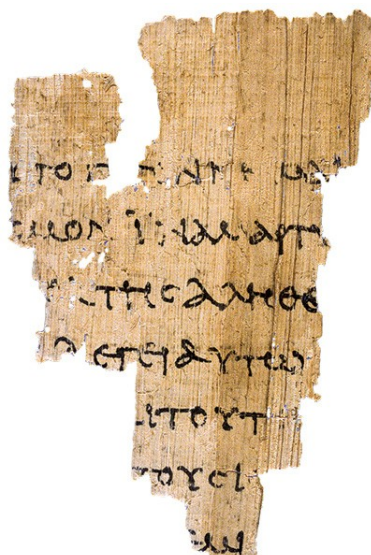 ΤΟ
ϹΜΟΝ ΙΝΑ ΜΑΡΤΥ
ΤΗϹ ΑΛΗΘΕ
ΛΕΓΕΙ ΑΥΤΩ
ΑΙ ΤΟΥΤ
ΤΟΥϹ Ι